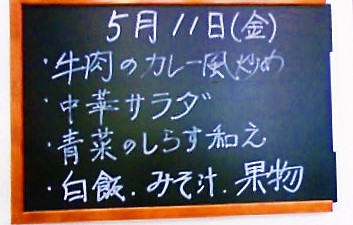 5月11日(金)
・牛肉のカレー風炒め
・中華サラダ
・青菜のしらす和え
・白飯.みそ汁.果物